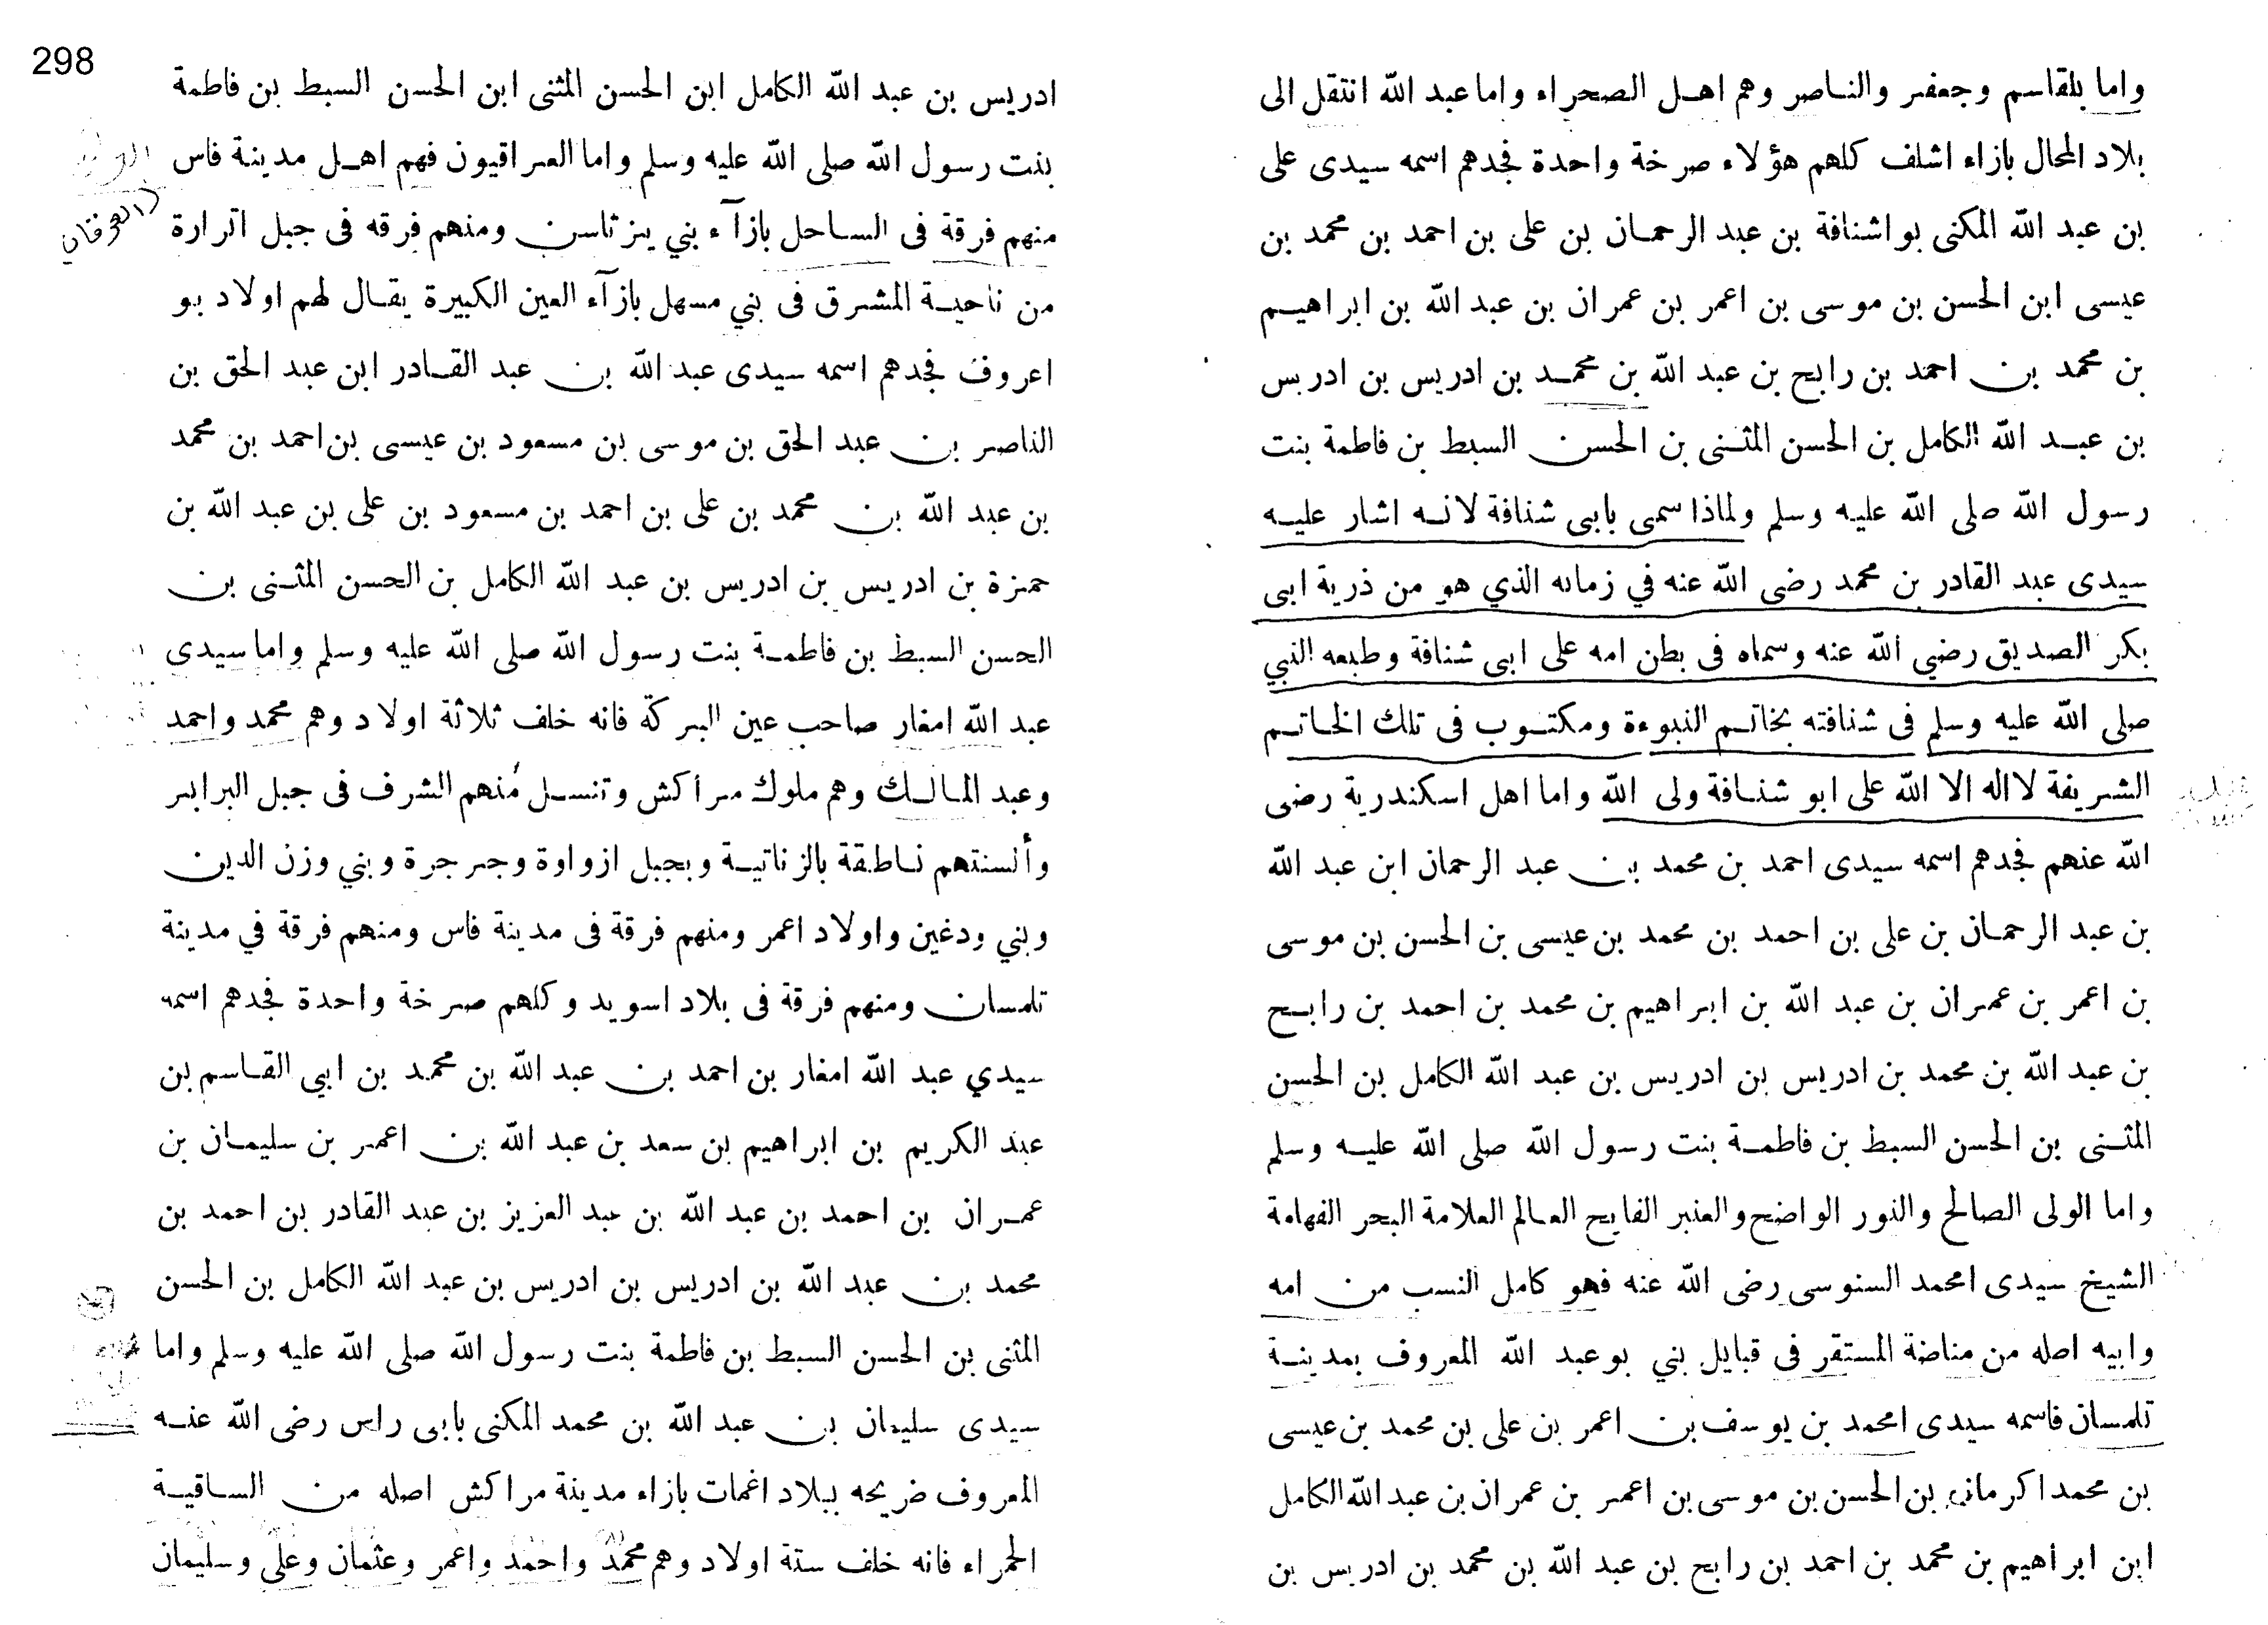 298
واما بلقاسم وجعفر والناصر وهم اهل الصحراء واما عبد الله انتقل الى
بلاد المحال بازاء اشلف كلهم هؤلاء صرخة واحدة فجدهم اسمه سيدى على
بن عبد الله المكنى بواشنافة بن عبد الرحمان بن على بن احمد بن محمد بن
عيسى ابن الحسن بن موسى بن اعمر بن عمران بن عبد الله بن ابراهيم
بن محمد بن احمد بن رابح بن عبد الله بن محمد بن ادريس بن ادريس
بن عبد الله الكامل بن الحسن المثنى بن الحسن السبط بن فاطمة بنت
رسول الله صلى الله عليه وسلم ولماذا سمى بابى شنافة لانه اشار عليه
سيدى عبد القادر بن محمد رضى الله عنه في زمانه الذي هو من ذرية ابى
بكر الصديق رضي الله عنه وسماه فى بطن امه على ابى شنافة وطبعه النبي
صلى الله عليه وسلم فى شنافته بخاتم النبوءة ومكتوب فى تلك الخاتم
الشريفة لااله الا الله على ابو شنافة ولى الله واما اهل اسكندرية رضى
الله عنهم فجدهم اسمه سيدى احمد بن محمد بن عبد الرحمان ابن عبد الله
بن عبد الرحمان بن على بن احمد بن محمد بن عيسى بن الحسن بن موسى
بن اعمر بن عمران بن عبد الله بن ابراهيم بن محمد بن احمد بن رابح
بن عبد الله بن محمد بن ادريس بن ادريس بن عبد الله الكامل بن الحسن
المثنى بن الحسن السبط بن فاطمة بنت رسول الله صلى الله عليه وسلم
واما الولى الصالح والنور الواضح والعنبر الفايح العالم العلامة البحر الفهامة
الشيخ سيدى امحمد السنوسى رضى الله عنه فهو كامل النسب من امه
وابيه اصله من مناضة المستقر فى قبايل بني بوعبد الله المعروف بمدينة
تلمسان فاسمه سيدى امحمد بن يوسف بن اعمر بن على بن محمد بن عيسى
بن محمد اكرمانى بن الحسن بن موسى بن اعمر بن عمران بن عبد الله الكامل
ابن ابراهيم بن محمد بن احمد بن رابح بن عبد الله بن محمد بن ادريس بن
ادريس بن عبد الله الكامل ابن الحسن المثنى ابن الحسن السبط بن فاطمة
بنت رسول الله صلى الله عليه وسلم واما العراقيون فهم اهل مدينة فاس
منهم فرقة فى الساحل بازآء بني يزناسن ومنهم فرقه فى جبل اترارة
من ناحية المشرق فى بني مسهل بازآء العين الكبيرة يقال لهم اولاد بو
اعروف فجدهم اسمه سيدى عبد الله بن عبد القادر ابن عبد الحق بن
الناصر بن عبد الحق بن موسى بن مسعود بن عيسى بن احمد بن محمد
بن عبد الله بن محمد بن على بن احمد بن مسعود بن على بن عبد الله بن
حمزة بن ادريس بن ادريس بن عبد الله الكامل بن الحسن المثنى بن
الحسن السبط بن فاطمة بنت رسول الله صلى الله عليه وسلم واما سيدى
عبد الله امغار صاحب عين البركة فانه خلف ثلاثة اولاد وهم محمد واحمد
وعبد المالك وهم ملوك مراكش وتنسل منهم الشرف فى جبل البرابر
وألسنتهم ناطقة بالزناتية وبجبل ازواوة وجرجرة وبني وزن الدين
وبني ودغين واولاد اعمر ومنهم فرقة فى مدينة فاس ومنهم فرقة في مدينة
تلمسان ومنهم فرقة فى بلاد اسويد وكلهم صرخة واحدة فجدهم اسمه
سيدي عبد الله امغار بن احمد بن عبد الله بن محمد بن ابي القاسم بن
عبد الكريم بن ابراهيم بن سعد بن عبد الله بن اعمر بن سليمان بن
عمران بن احمد بن عبد الله بن عبد العزيز بن عبد القادر بن احمد بن
محمد بن عبد الله بن ادريس بن ادريس بن عبد الله الكامل بن الحسن
المثنى بن الحسن السبط بن فاطمة بنت رسول الله صلى الله عليه وسلم واما
سيدى سليمان بن عبد الله بن محمد المكنى بابى راس رضى الله عنه
المعروف ضريحه ببلاد اغمات بازاء مدينة مراكش اصله من الساقية
الحمراء فانه خلف ستة اولاد وهم محمد واحمد واعمر وعثمان وعلى وسليمان